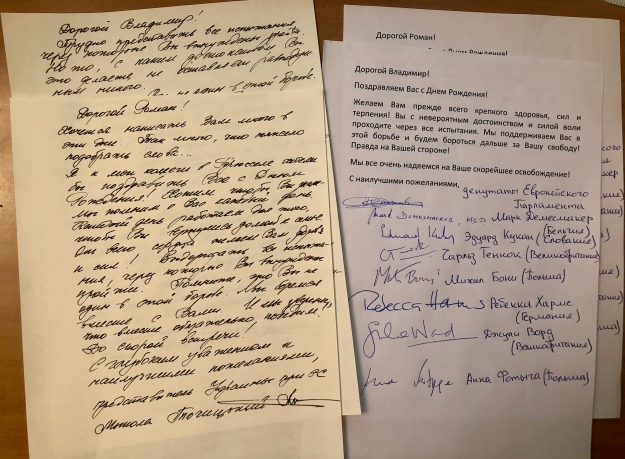 Дорогой Владимир!
Трудно представить все испытания,
через которые Вы вынуждены пройти,
Но то, с каким достоинством Вы
это делаете, не оставляет равнодуш-
ным никого.
один в этой борьбе.
Дорогой Роман!
Хочется написать Вам много в
эти дни. Так много, что тяжело
подобрать слова...
Я и мои коллеги в Брюсселе хотим
бы поздравить Вас с Днем
Рождения! Хотим, чтобы Вы знали,
мы помним о Вас каждый день.
Каждый день работаем для того,
чтобы Вы вернулись домой к семье.
От всего сердца желаем Вам здоровья
и сил! Выдержать те испыта-
ния, через которые Вы вынуждены
пройти. Помните, что Вы не
один в этой борьбе. Мы боремся
вместе с Вами. И мы уверены,
что вместе обязательно победим!
До скорой встречи!
С глубоким уважением и
наилучшими пожеланиями,
представитель Украины при ЕС
Микола Точицький
Дорогой Роман!
Днем Рождения!
Дорогой Владимир!
Поздравляем Вас с Днем Рождения!
Желаем Вам прежде всего крепкого здоровья, сил и
терпения! Вы с невероятным достоинством и силой воли
проходите через все испытания. Мы поддерживаем Вас в
этой борьбе и будем бороться дальше за Вашу свободу!
Правда на Вашей стороне!
Мы все очень надеемся на Ваше скорейшее освобождение!
С наилучшими пожеланиями, депутаты Европейского
Парламента
Марк Демесмакер
(Бельгия)
Эдуард Кукан (Словакия)
Чарльз Теннок (Великобритания)
Михал Бони (Польша)
Rebecca Harms Ребекка Хармс
(Германия)
Julie Ward Джули Ворд
(Великобритания)
Анна Фотыга (Польша)